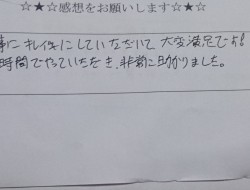 ☆★☆感想をお願いします☆★☆
事にキレイにしていただいて大変満足です。
時間でやっていただき、非常に助かりました。